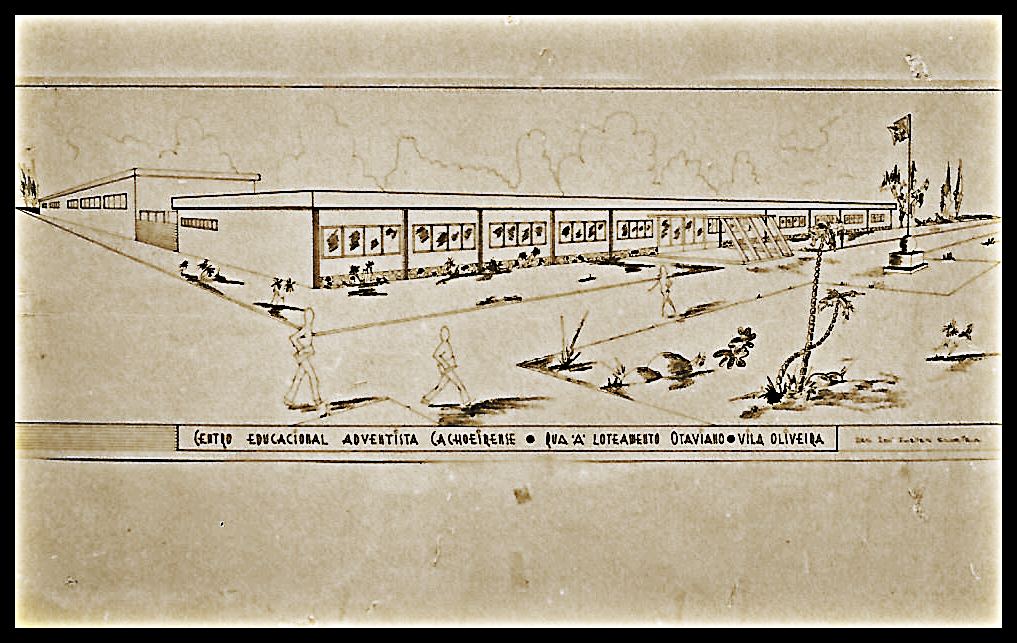 CENTRO EDUCACIONAL ADVENTISTA CACHOEIRENSE • RUA "A" LOTEAMENTO OTAVIANO • VILA OLIVEIRA